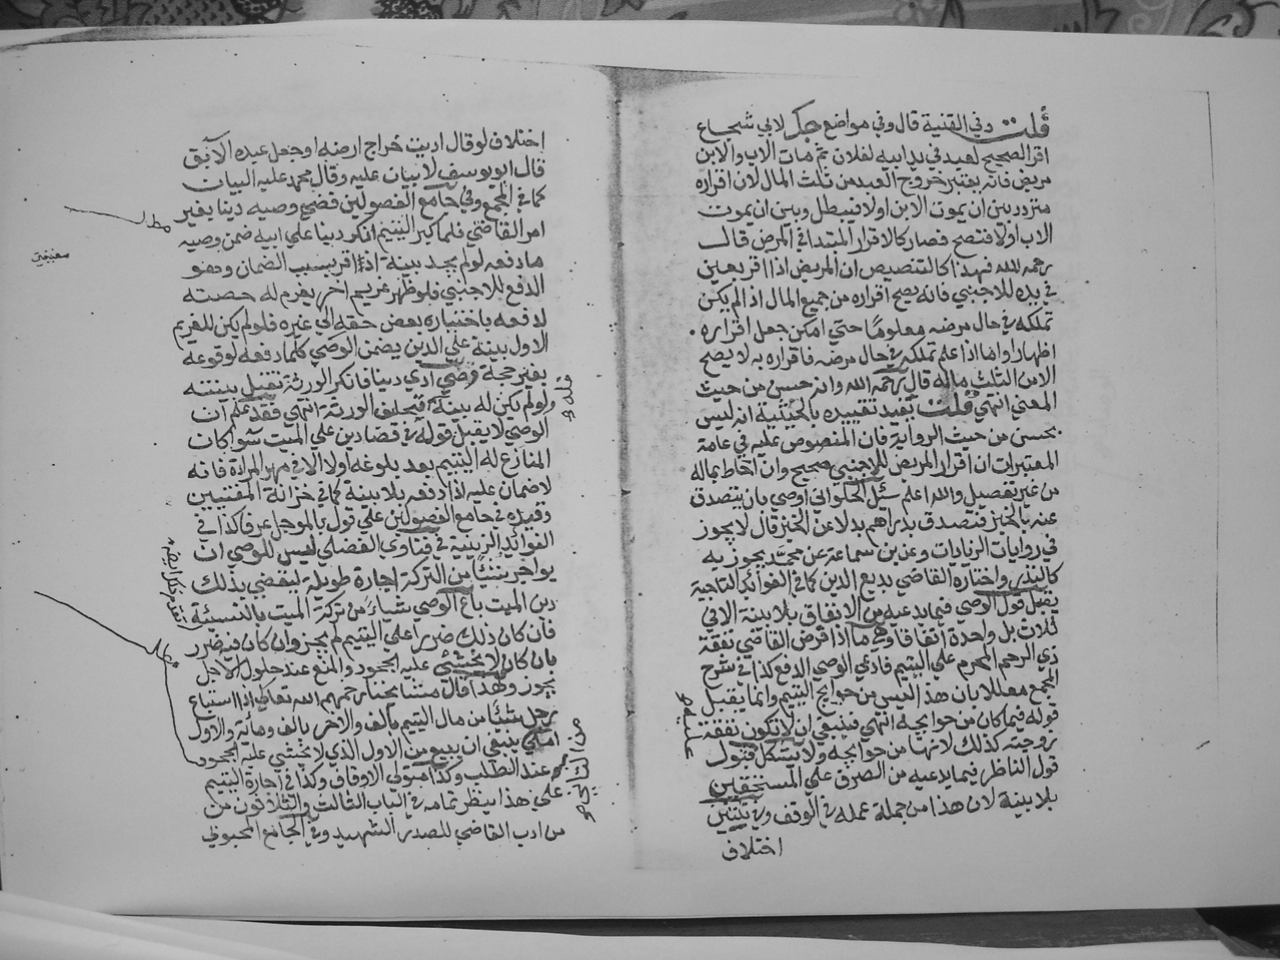 قلت وفي القنية قال وفي مواضع جك لابي شجاع
اقر الصحيح لعبد في يد ابيه لفلان ثم مات الاب والابن
مريض فانه يعتبر خروج العبد من ثلث المال لان اقراره
متردد بين ان يموت الابن اولا فيبطل وبين ان يموت
الاب اولا فتصح فصار كالاقرار المبتدا في المرض قالـ
رحمه الله فهذا كالتنصيص ان المريض اذا اقر بعين
في يده للاجنبي فانه يصح اقراره من جميع المال اذ الم يكن
تملكه في حال مرضه معلوما حتي امكن جعل اقراره
اظهارا واما اذا علم تملكه في حال مرضه فاقراره به لا يصح
الا من الثلث ماله قال رحمه الله وانه حسن من حيث
المعني انتهي قلت يفيد تقييده بالحيثية انه ليس
بحسن من حيث الرواية فان المنصوص عليه في عامة
المعتبرات ان اقرار المريض للاجنبي صحيح وان احاط بماله
من غير تفصيل والله اعلم سئل الحلواني اوصي بان يتصدق
عنه بالخبز فتصدق بدراهم بدلا عن الخبز قال لا يجوز
في روايات الزيادات وعن بن سماعة عن محمد يجوز به
كالنذر واختاره القاضي بديع الدين كما في الفوائد التاجية
يقبل قول الوصي فيما يدعيه من الانفاق بلا بينة الا في
ثلاث بل واحدة اتفاقا وهي ما اذا فرض القاضي نفقة
ذي الرحم المحرم علي اليتيم فادعي الوصي الدفع كذا في شرح
المجمع معللا بان هذا ليس من حوايج اليتيم وانما يقبل
قوله فيما كان من حوايجه انتهي فينبغي ان لا تكون نفقة
زوجته كذلك لانها من حوايجه ولا يشكل قبول
قول الناظر فيما يدعيه من الصرف علي المستحقين
بلا بينة لان هذا من جملة عمله في الوقف وفي ثنتين
اختلاف
اختلاف لو قال اديت خراج ارضه او جعل عبده الآبق
قال ابو يوسف لا بيان عليه وقال محمد عليه البيان
كما في المجمع وفي جامع الفصولين قضي وصيه دينا بغير
امر القاضي فلما كبر اليتيم انكر دينا علي ابيه ضمن وصيه
ما دفعه لو لم يجد بينة اذ اقر بسبب الضمان وهو
الدفع للاجنبي فلو ظهر غريم اخر يغرم له حصته
لدفعه باختياره بعض حقه الي غيره فلو لم يكن للغريم
الاول بينة علي الدين يضمن الوصي كلما دفعه لوقوعه
بغير حجة وصي ادي دينا فانكر الورثة تقبل بينته
ولو لم يكن له بينة فتحليف الورثة انتهي فقد علم ان
الوصي لا يقبل قوله في قضا دين علي الميت سوا كان
المنازع له اليتيم بعد بلوغه اولا الا في مهر المراة فانه
لا ضمان عليه اذا دفعه بلا بينة كما في خزانة المفتيين
وقيده في جامع الفصولين علي قول بالموجل عرفا كذا في
الفوائد الزينية في فتاوي الفضلي ليس للوصي ان
يواجر شيئا من التركة اجارة طويلة ليقضي بذلك
دين الميت باع الوصي شيا من تركة الميت بالنسيئة
فان كان ذلك ضررا علي اليتيم لم يجز وان كان فيه ضرر
بان كان لا يخشي عليه الجحود والمنع عند حلول الاجل
يجوز ولهذا قال مشايخنا رحمهم الله تعالي اذا استباع
رجل شيئا من مال اليتيم بالف والاخر بالف ومائة والاول
املي ينبغي ان يبيع من الاول الذي لا يخشي عليه الجحود
عند الطلب وكذا متولي الاوقاف وكذا في اجارة اليتيم
علي هذا ينظر تمامه في الباب الثالث والثلاثون من
من ادب القاضي للصدر الشهيد وفي الجامع المحبوبي